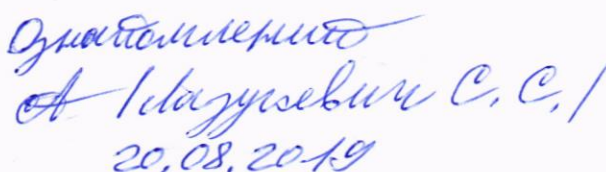 Ознакомлению
А /Лазукевич С. С./
20.08.2019